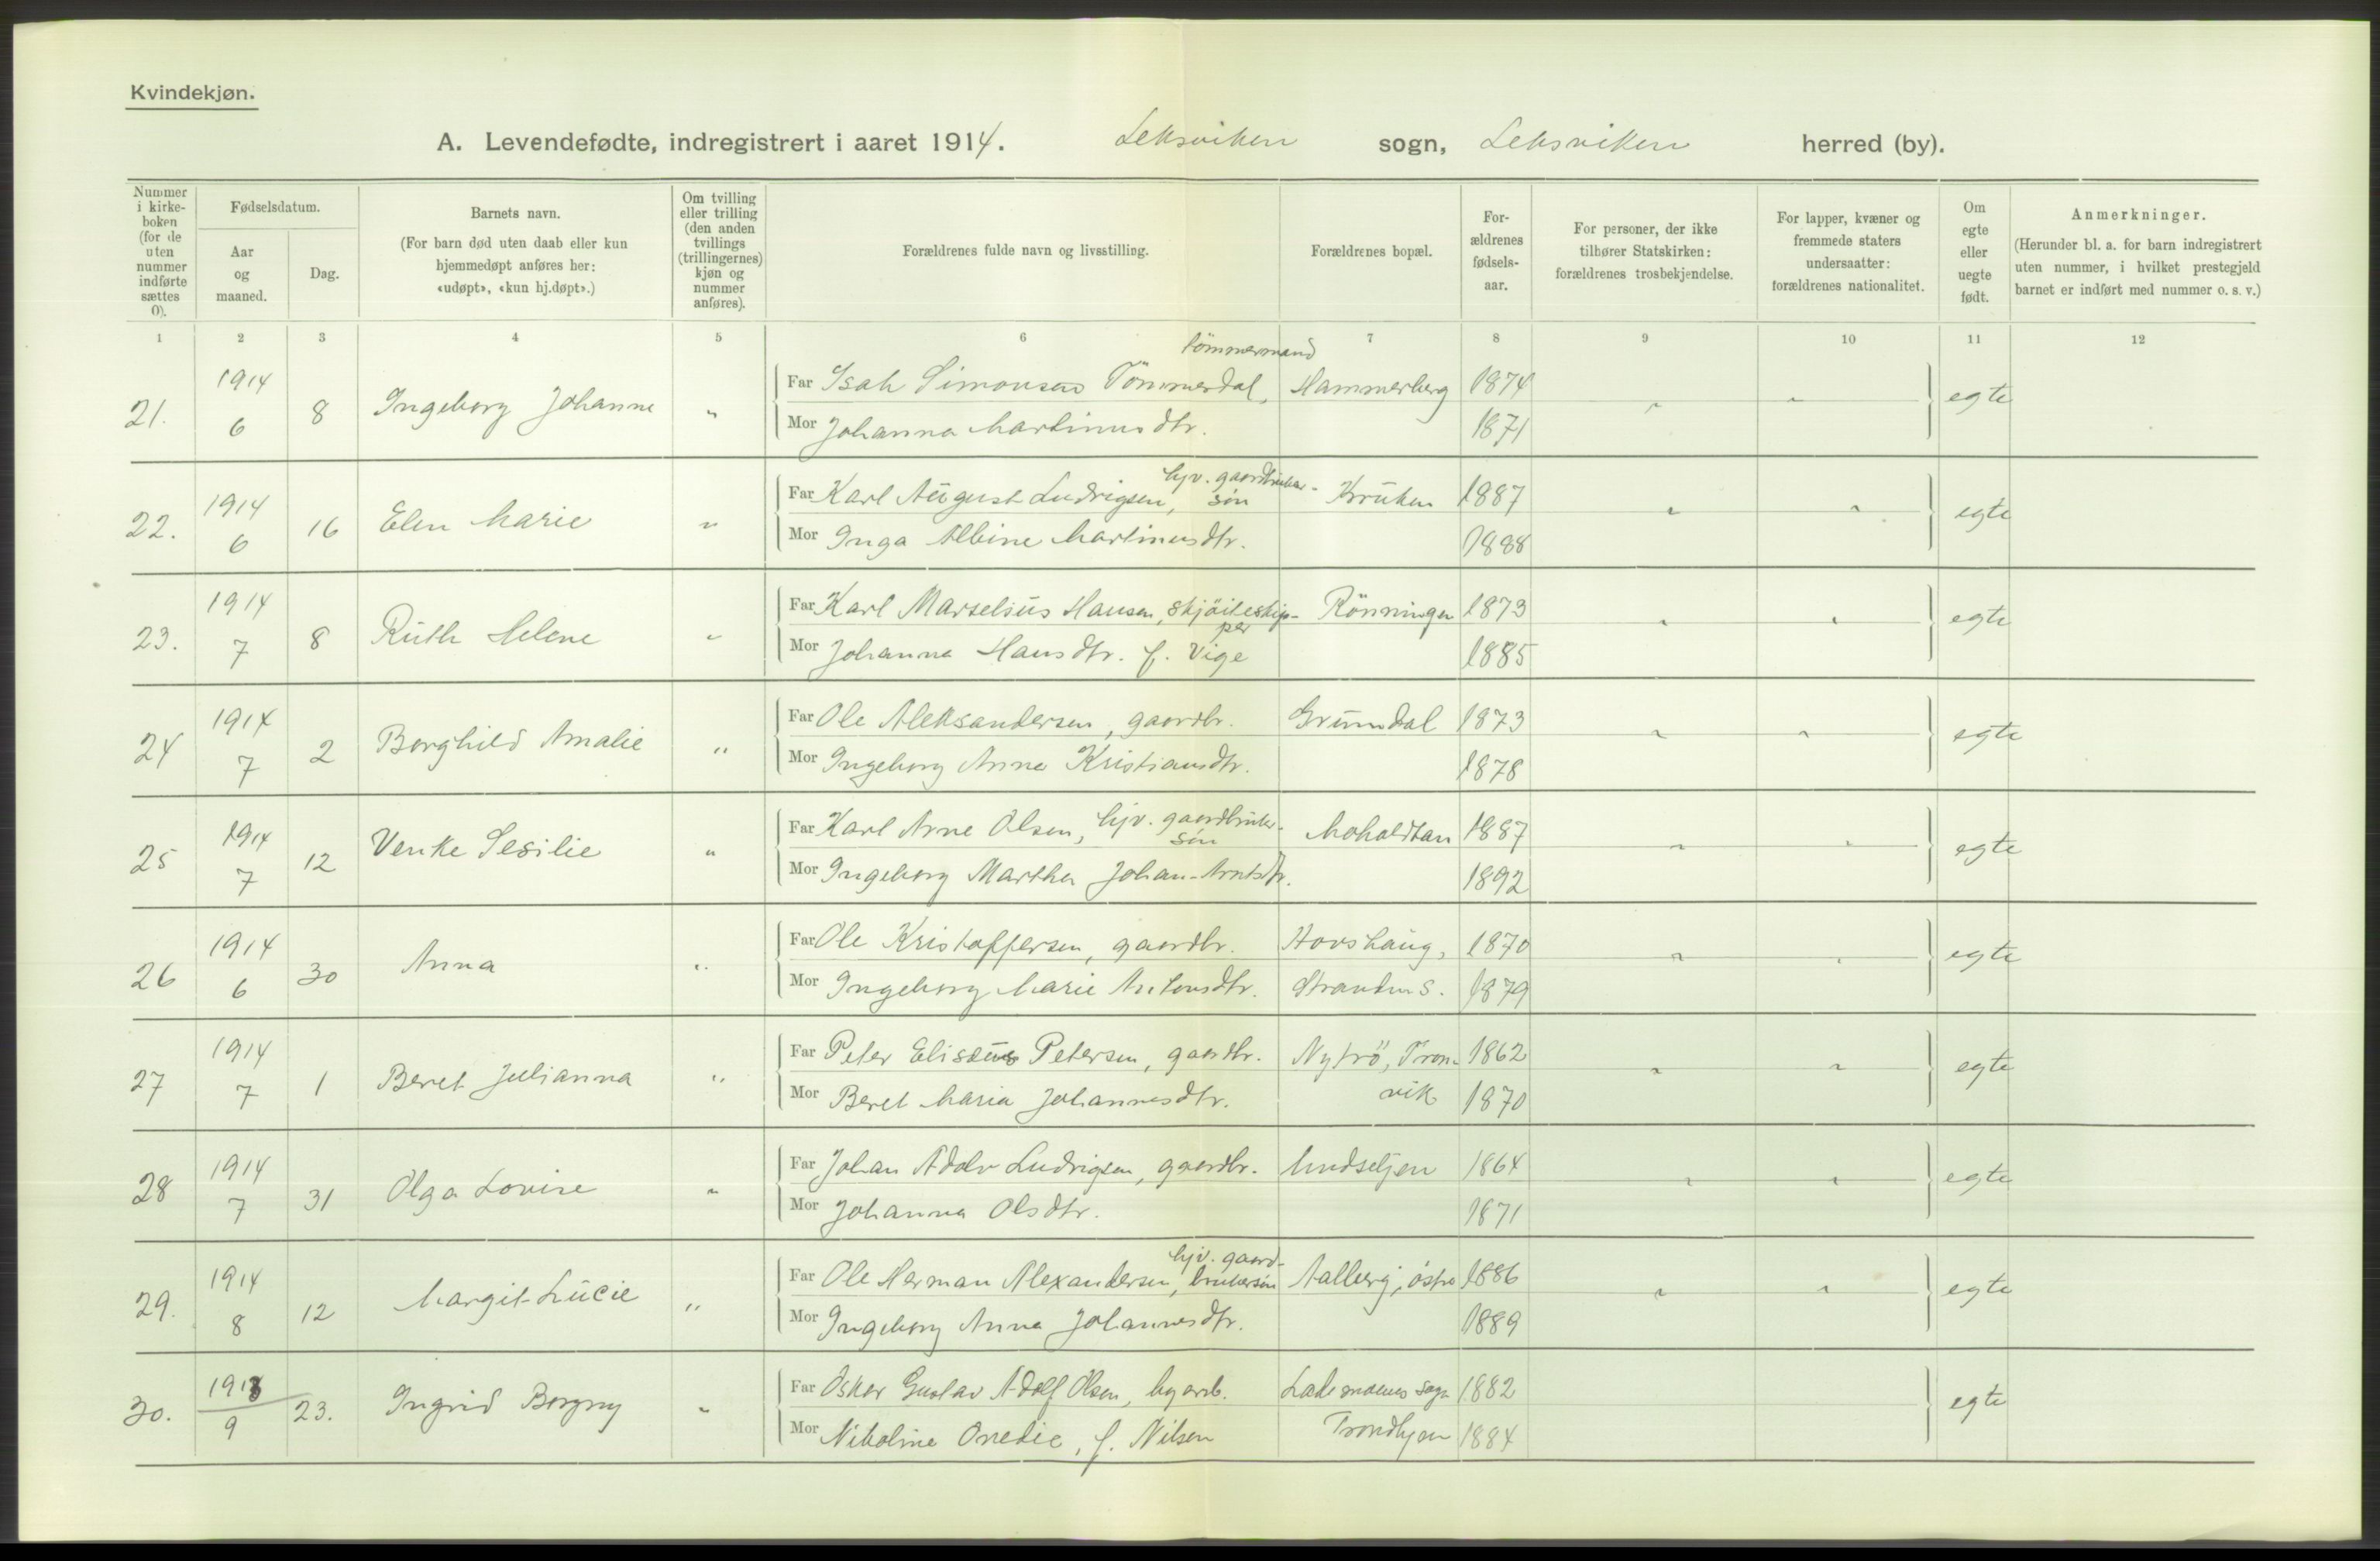 Kvindekjøn.
A. Levendefødte, indregistrert i aaret 1914. Leksviken sogn, Leksviken herred (by).
Nummer i kirke-boken (for de uten nummer indførte sættes 0).
Fødselsdatum.
Aar og maaned.
Dag.
Barnets navn.
(For barn død uten daab eller kun hjemmedøpt anføres her: «udøpt», «kun hj.døpt».)
Om tvilling eller trilling (den anden tvillings (trillingernes) kjøn og nummer anføres).
Forældrenes fulde navn og livsstilling.
Forældrenes bopæl.
For-ældrenes fødsels-aar.
For personer, der ikke tilhører Statskirken: forældrenes trosbekjendelse.
For lapper, kvæner og fremmede staters undersaatter: forældrenes nationalitet.
Om egte eller uegte født.
Anmerkninger.
(Herunder bl. a. for barn indregistrert uten nummer, i hvilket prestegjeld barnet er indført med nummer o. s. v.)
1 2 3 4 5 6 7 8 9 10 11 12
tömmermand
21. 1914 6 8 Ingeborg Johanne " Far Isak Simonsen Tömmerdal, Hammerberg 1874 " " egte
Mor Johanna Martinusdtr. 1871
hjv. gaardbruker-
22. 1914 6 16 Elen Marie " Far Karl August Ludvigsen, sön Kruken 1887 " " egte
Mor Inga Albine Martinusdtr. 1888
23. 1914 7 8 Ruth Helene " Far Karl Marselius Hansen, skjöiteskip- Rönningen 1873 " " egte
per
Mor Johanna Hansdtr. f. Vige 1885
24 1914 7 2 Borghild Amalie " Far Ole Aleksandersen, gaardbr. Grundal 1873 " " egte
Mor Ingeborg Anna Kristiansdtr. 1878
25 1914 7 12 Venke Sesilie " Far Karl Arne Olsen, hjv. gaardbruker- Moholdtan 1887 " " egte
sön
Mor Ingeborg Martha Johan-Arntsdtr. 1892
26 1914 6 30 Anna " Far Ole Kristoffersen, gaardbr. Hovshaug, 1870 " " egte
Mor Ingeborg Marie Antonsdtr. 1879
27 1914 7 1 Beret Julianna " Far Peter Elisæus Petersen, gaardbr. Nytrö, Tron- 1862 " " egte
Mor Beret Maria Johannesdtr. vik 1870
28 1914 7 31 Olga Lovise " Far Johan Adolv Ludvigsen, gaardbr. 1864 " " egte
Mor Johanna Olsdtr. 1871
hjv. gaard-
29. 1914 8 12 Margit Lucie " Far Ole Herman Alexandersen, brukersön Aalberg, östre 1886 " " egte
Mor Ingeborg Anna Johannesdtr. 1889
30. 1913 9 23. Ingrid Borgny " Far Oskar Gustav Adolf Olsen, byarb. Lademoens sogn 1882 egte
Mor Nikoline Onedie, f. Nilsen Trondhjem 1884